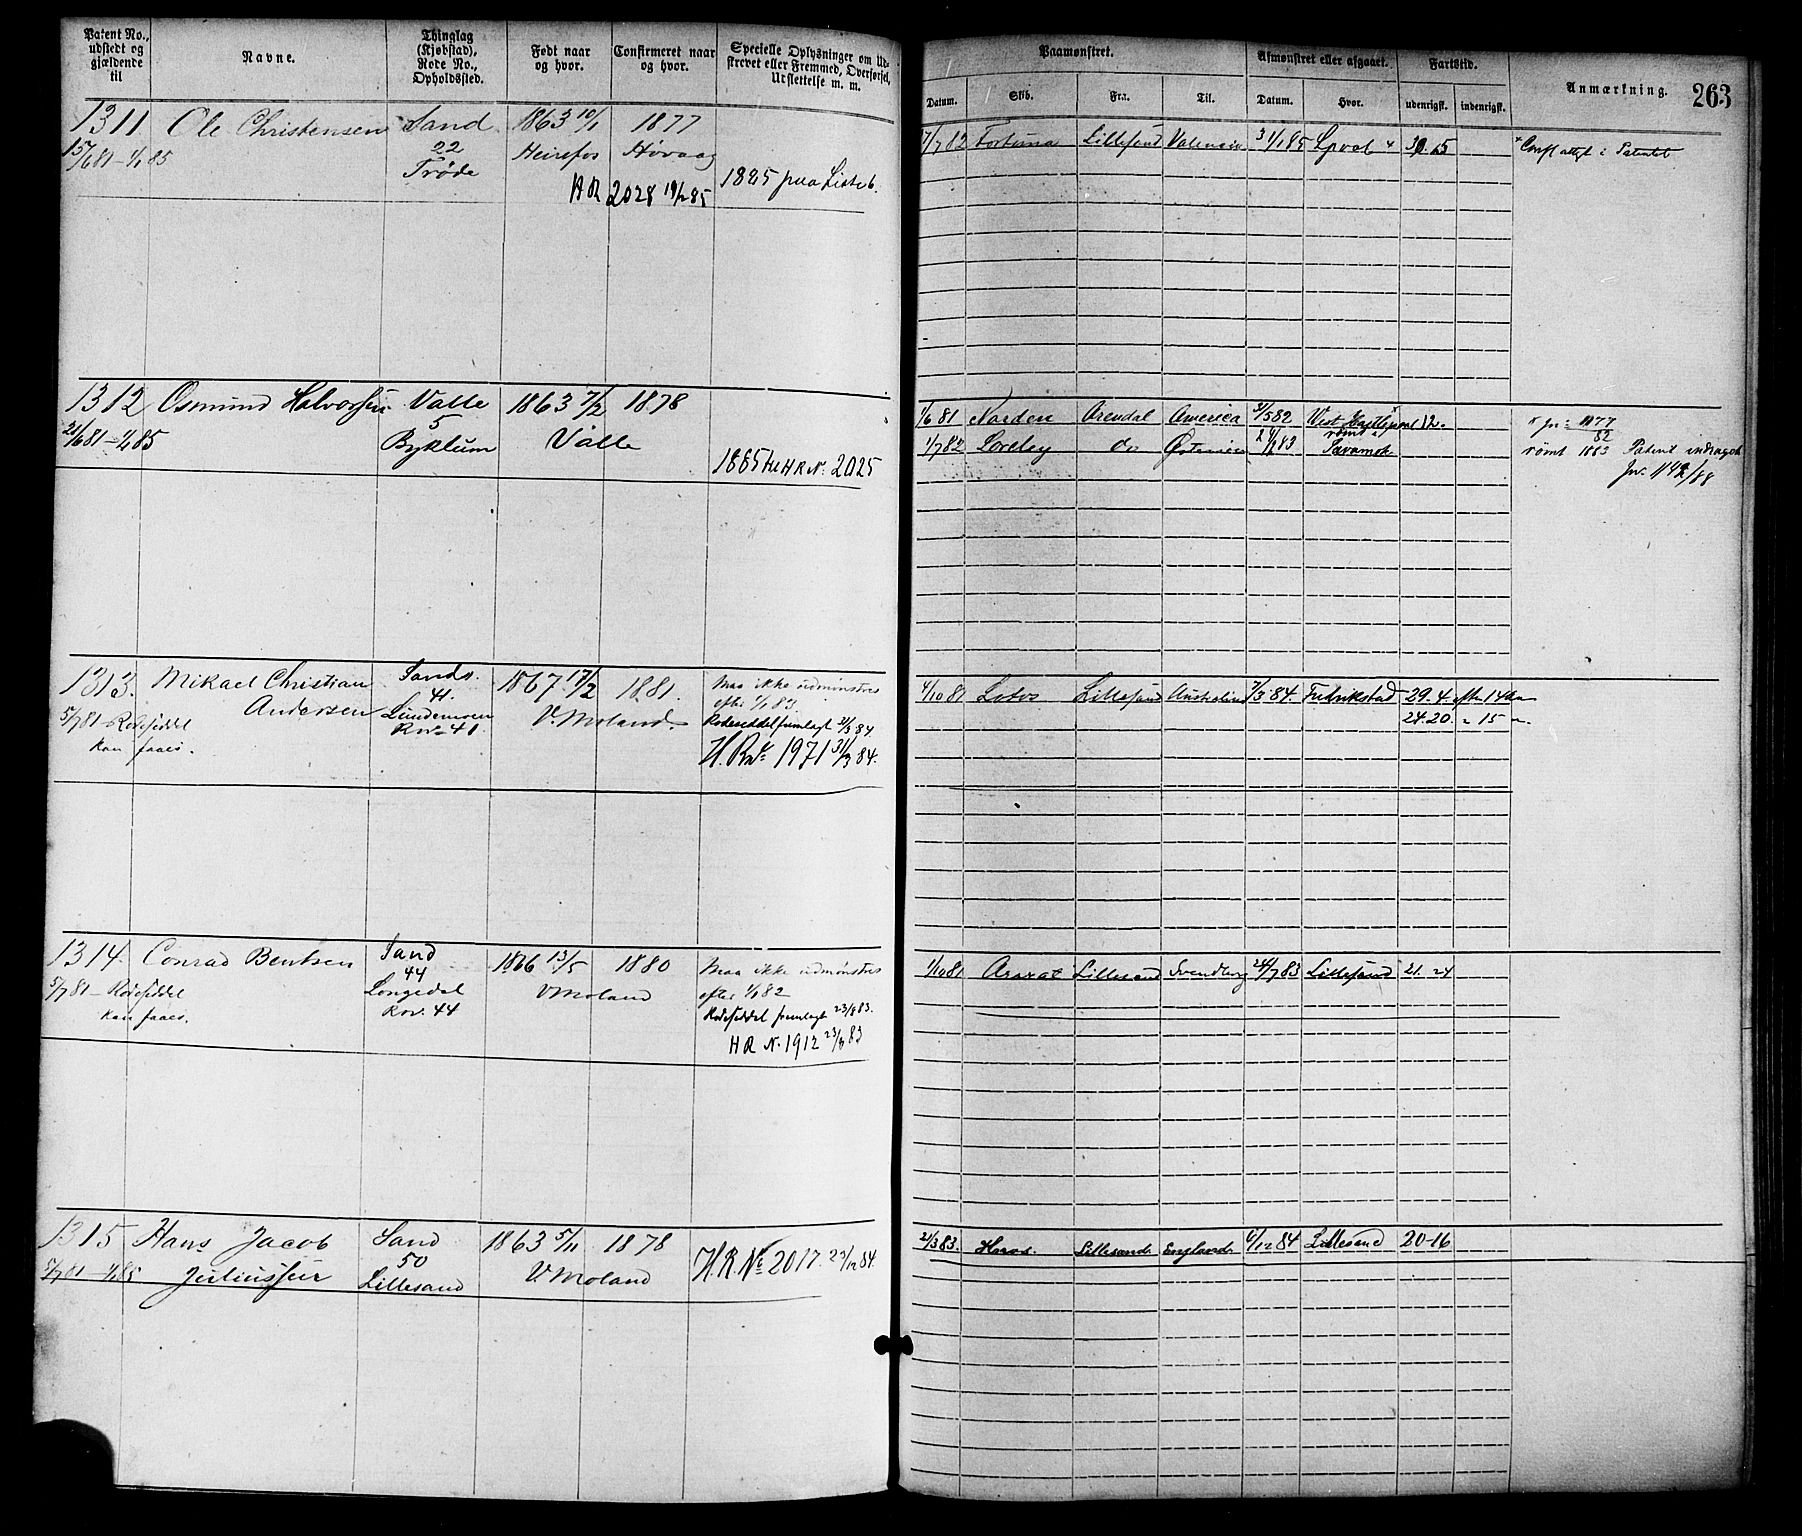 Patent No., udstedt og gjældende til
Navne.
Thinglag (Kjøbstad), Rode No., Opholdssted.
Født naar og hvor.
Confirmeret naar og hvor.
Specielle Oplysninger om Udskrevet eller Fremmed, Overførsel, Udslettelse m. m.
Paamønstret.
Afmønstret eller afgaaet.
Fartstid.
Anmærkning.
263
Datum.
Skib.
Fra.
Til.
Datum.
Hvor.
udenrigsk.
indenrigsk.
1311 Ole Christensen Sand 1863 10/1 1877
15/6 81 - 1/1 85 22 Heirefos Høvaag
Trøde
HR 2028 19/2 85 1885 paa Liste b.
7/7 82 Fortuna Lillesand Valencia 3 1/1 85 Lpool
Patentet
1312 Osmund Halvorsen Valle 1863 7/2 1878
21/6 81 - 1/1 85 5 Valle
Byklum
1885 til HR N. 2025
1/6 81 Norden Arendal America 2/5 82 Vest Hartlepool 12.
1/7 82 Loreley do 83
rømt 1883 Patent indragat
1313. Mikael Christian Andersen Sands. 1867 17/2 1881.
5/7 81 - Rodeseddel kan faaes. 41. V. Moland.
Lundemoen
Rov 41
Maa ikke udmønstres
efter 1/1 83
Rodeseddel fremlagt 31/3 84.
H.R. Nr 1971 31/3 84.
4/10 81 Lotos Lillesand Australien 7/3 84. Fredrikstad 29. 4. efter 14
24. 20. " 15 "
1314. Conrad Bentsen Sand 1866 13/5 1880
5/7 81 - Rodeseddel kan faaes. 44 V Moland
Longedal
Rov. 44
Maa ikke udmønstres
efter 1/1 82
Rodeseddel fremlagt 23/8 83.
HR N. 1912 23/8 83
1/10 81 Ararat Lillesand Svendborg 24/7 83 Lillesand 21. 24
1315 Hans Jacob Juliussen Sand 1863 5/11 1878
5/7 81 - 1/1 85 50 V Moland
Lillesand
H.R. No 2017. 23/12 84.
2/3 83. Lillesand England 6/12 84 Lillesand 20-16